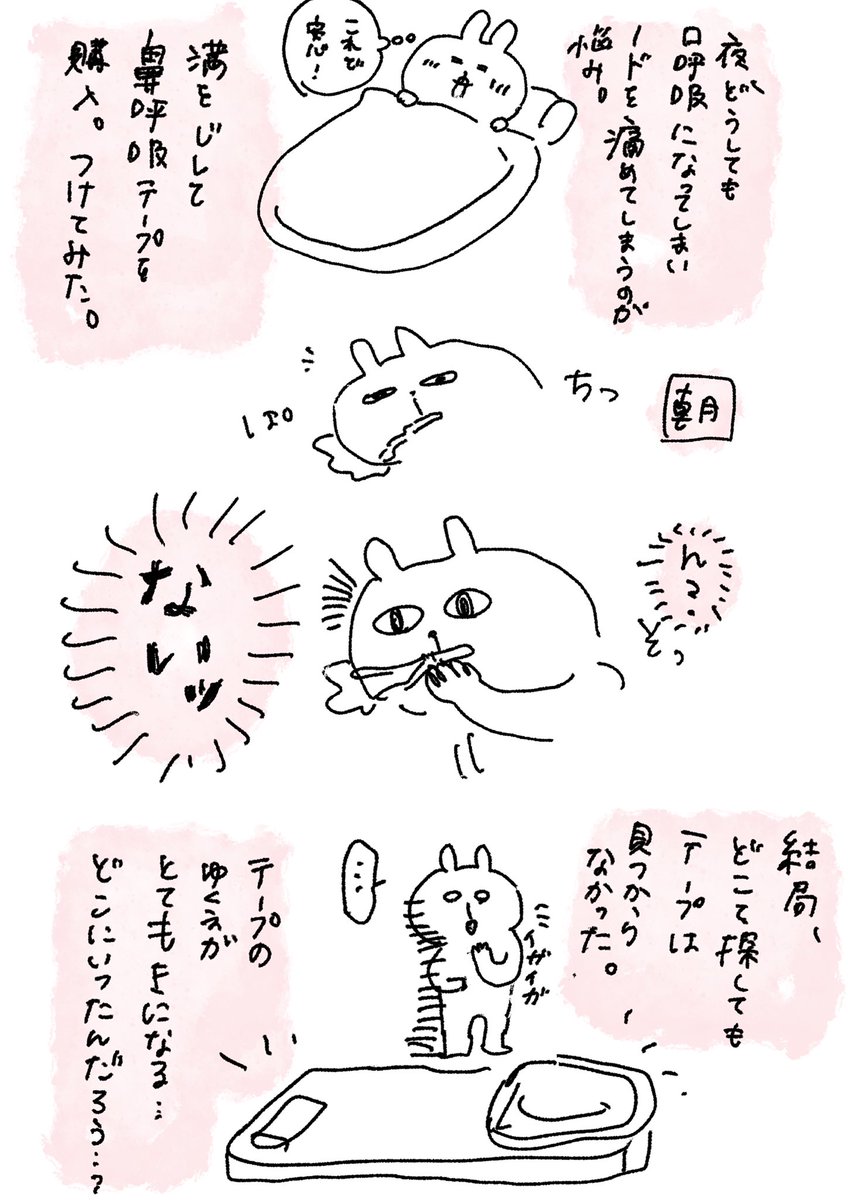 夜どうしても
口呼吸になってしまい
ノドを痛めてしまうのが
悩み。
これで
安心!
満をじして
鼻呼吸テープを
購入。つけてみた。
朝
ちっ
しょ。
ん?
そっ
ないッ
結局、
どこて探しても
テープは
見つから
なかった。
イガイガ
…
テープの
ゆくえが
とてもきになる…
どこにいったんだろう…?